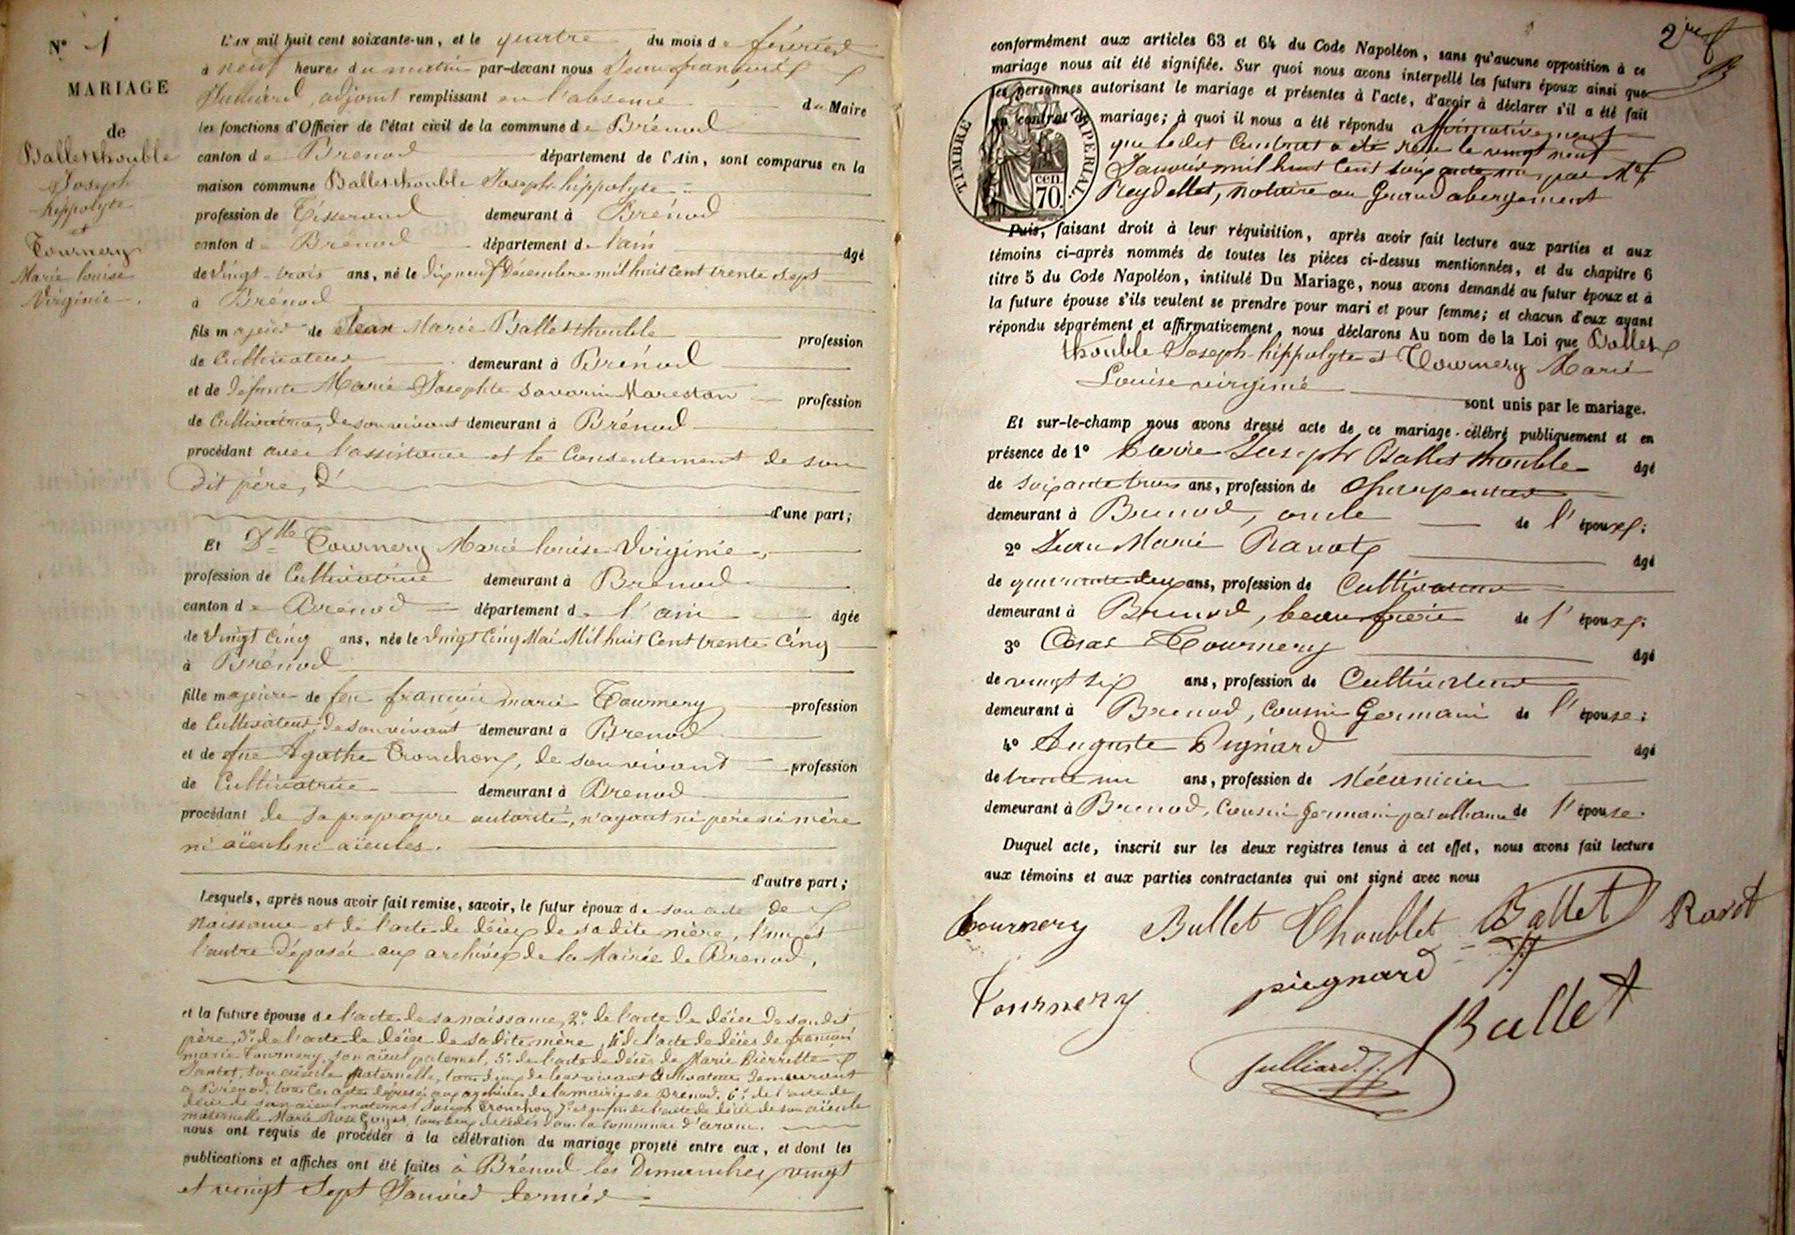 N° 1
MARIAGE
de
Ballet thouble
Joseph
hippolyte
et
Tournery
Marie louise
Virginie.
L'AN mil huit cent soixante-un, et le quatre du mois de février
à neuf heures du matin par-devant nous Jean françois
Julliard, adjoint remplissant en l'absence du Maire
les fonctions d'Officier de l'état civil de la commune de Brénod
canton de Brénod département de l'Ain, sont comparus en la
maison commune Ballet thouble Joseph hippolyte
profession de Tisserand demeurant à Brénod
canton de Brénod département de l'ain âgé
de Vingt-trois ans, né le dix neuf Décembre mil huit cent trente sept
à Brénod
fils majeur de Jean Marie Ballet thouble profession
de Cultivateur demeurant à Brénod
et de defunte Marie Josephte Savarin Marestan profession
de Cultivatrice, de son vivant demeurant à Brénod
procédant avec l'assistance et le Consentement de son
dit père, d'
d'une part;
Et Dlle Tournery Marie louise Virginie,
profession de Cultivatrice demeurant à Brénod
canton de Brénod département de l'ain âgée
de Vingt Cinq ans, née le Vingt Cinq Mai Mil huit Cent trente Cinq
à Brénod
fille majeure de feu françois marie Tournery profession
de Cultivateur, de son vivant demeurant à Brénod
et de feue Agathe Tronchon, de son vivant profession
de Cultivatrice demeurant à Brénod
procédant de sa propre autorité, n'ayant ni père ni mère
ni aïeuls ni aïeules.
d'autre part;
Lesquels, après nous avoir fait remise, savoir, le futur époux de son acte de
Naissance et de l'acte de décès de sa dite mère, l'un et
l'autre déposés aux archives de la Mairie de Brénod,
et la future épouse de l'acte de sa naissance, 2° de l'acte de décès de son dit
père, 3° de l'acte de décès de sa dite mère, 4° de l'acte de décès de françois
marie Tournery, son aïeul paternel, 5° de l'acte de décès de Marie Pierrette
son aïeule paternelle, tous deux de leur vivant Cultivateurs demeurant
à Brénod, tous ces actes déposés aux archives de la mairie de Brénod. 6° de l'acte de
décès de son aïeul maternel Joseph Tronchon, 7° et enfin de l'acte de décès de son aïeule
maternelle Marie Rose Goyet, tous deux décédés dans la commune d'
nous ont requis de procéder à la célébration du mariage projeté entre eux, et dont les
publications et affiches ont été faites à Brénod les Dimanches vingt
et vingt sept Janvier dernier
2me
conformément aux articles 63 et 64 du Code Napoléon, sans qu'aucune opposition à ce
mariage nous ait été signifiée. Sur quoi nous avons interpellé les futurs époux ainsi que
les personnes autorisant le mariage et présentes à l'acte, d'avoir à déclarer s'il a été fait
un contrat de mariage; à quoi il nous a été répondu affirmativement
que ledit Contrat a été reçu le vingt neuf
Janvier mil huit Cent soixante un, par Me
Reydellet, notaire au Grand abergement
TIMBRE IMPERIAL.
cen. 70.
Puis, faisant droit à leur réquisition, après avoir fait lecture aux parties et aux
témoins ci-après nommés de toutes les pièces ci-dessus mentionnées, et du chapitre 6
titre 5 du Code Napoléon, intitulé Du Mariage, nous avons demandé au futur époux et à
la future épouse s'ils veulent se prendre pour mari et pour femme; et chacun d'eux ayant
répondu séparément et affirmativement, nous déclarons Au nom de la Loi que Ballet
thouble Joseph hippolyte et Tournery Marie
Louise virginie
sont unis par le mariage.
Et sur-le-champ nous avons dressé acte de ce mariage célébré publiquement et en
présence de 1° Pierre Joseph Ballet thouble âgé
de soixante trois ans, profession de Charpentier
demeurant à Brénod, oncle de l'époux;
2° Jean Marie Ravot âgé
de quarante deux ans, profession de Cultivateur
demeurant à Brénod, beau frère de l'époux;
3° César Tournery âgé
de vingt six ans, profession de Cultivateur
demeurant à Brénod, Cousin Germain de l'épouse;
4° Auguste Pugnard âgé
de trente un ans, profession de Mécanicien
demeurant à Brénod, Cousin Germain par alliance de l'épouse.
Duquel acte, inscrit sur les deux registres tenus à cet effet, nous avons fait lecture
aux témoins et aux parties contractantes qui ont signé avec nous
tournery Ballet Thoublet Ballet Ravot
Tournery piegnard Ballet
Julliard. J.